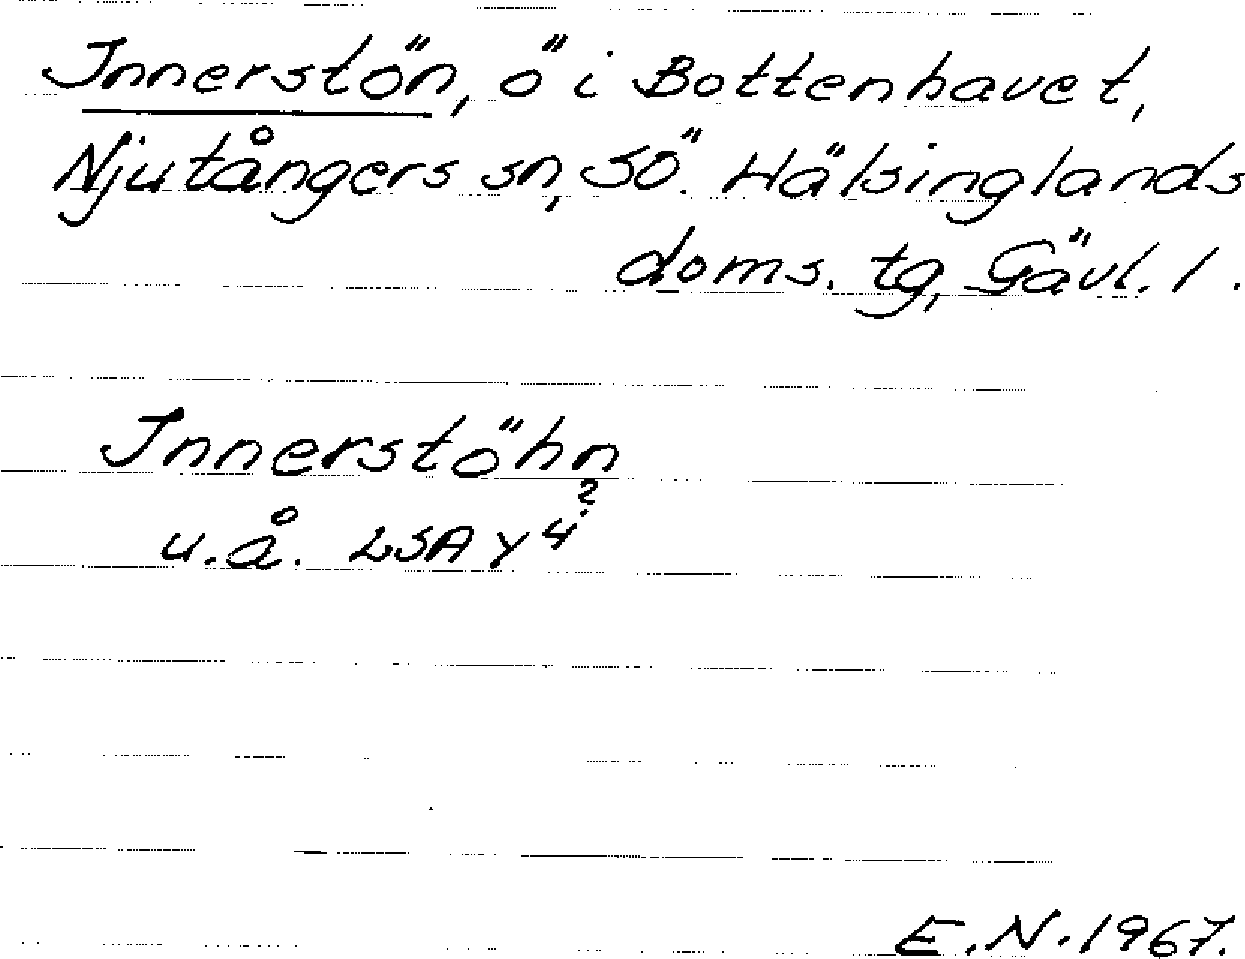 Innerstön, ö i Bottenhavet,
Njutångers sn, SÖ. Hälsinglands
doms. tg, Gävl. l.
Innerstöhn
u.å. LSA Y 4?
E.N. 1967.